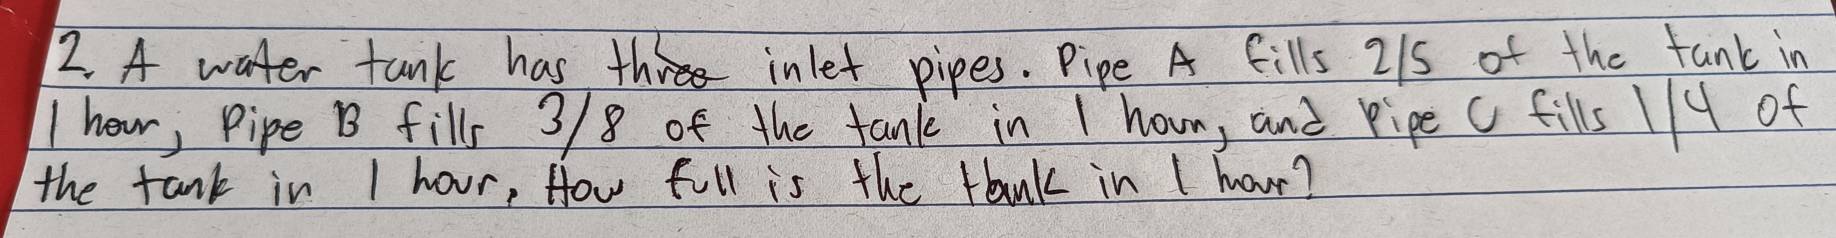 2. A water tank has three inlet pipes. Pipe A fills 2/5 of the tank in
1 hour, Pipe B fills 3/8 of the tank in 1 hour, and Pipe C fills 1/4 of
the tank in 1 hour. How full is the tank in 1 hour?